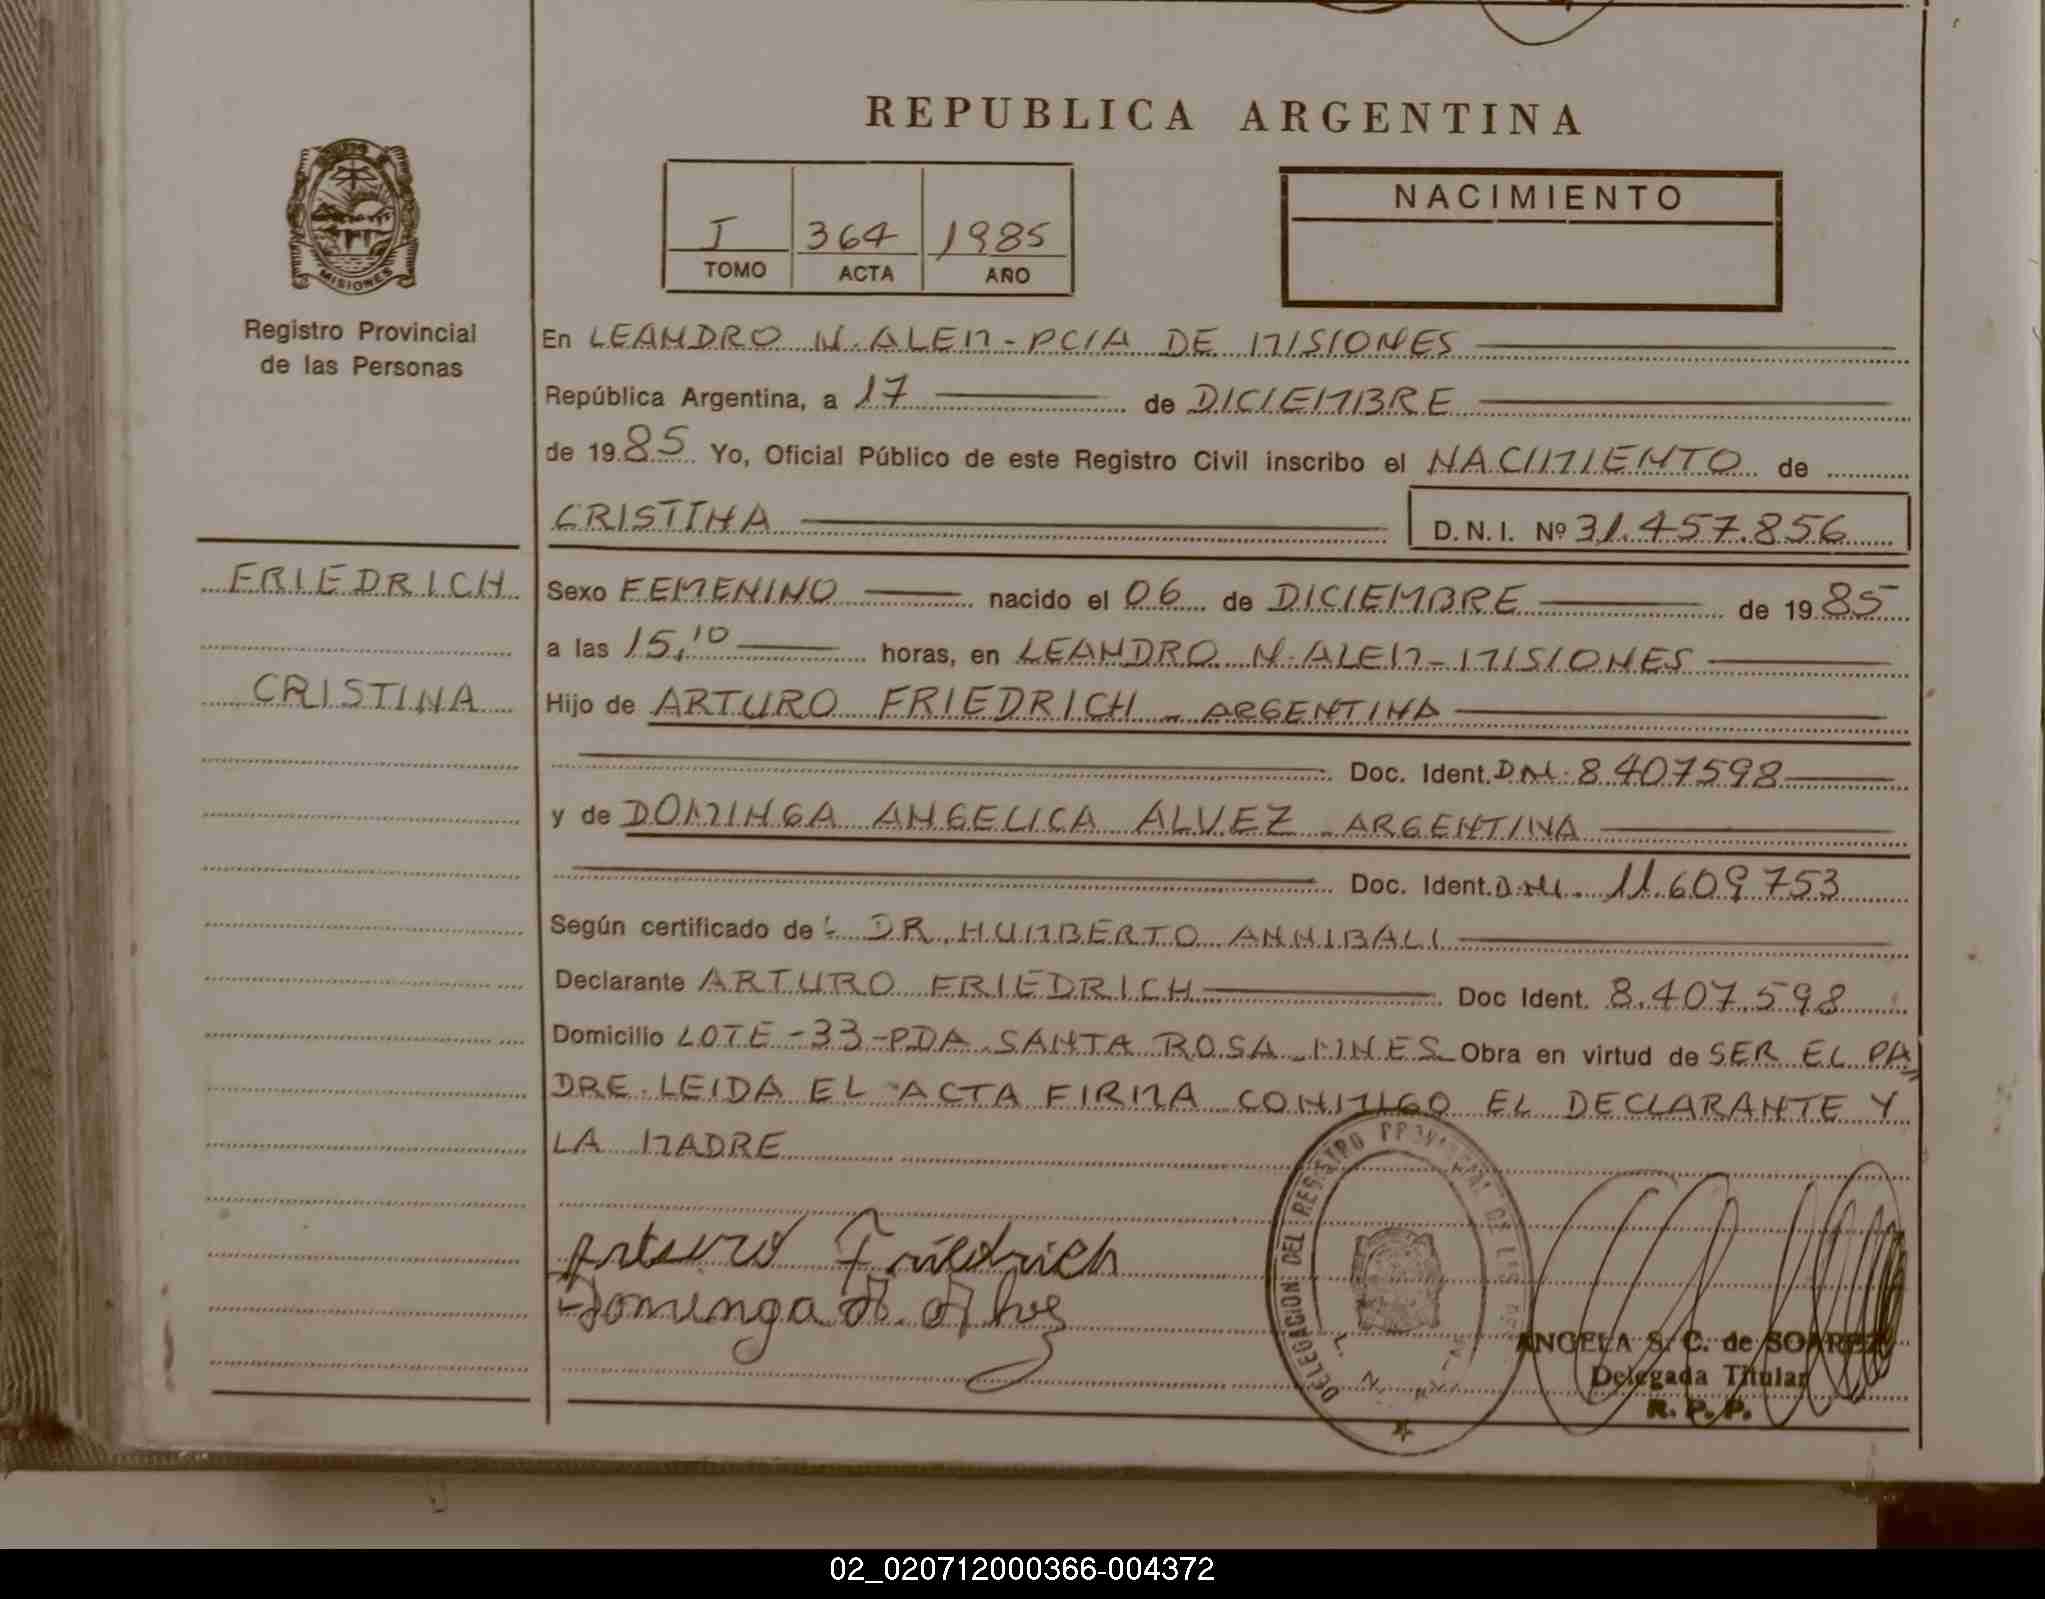 REPUBLICA ARGENTINA
MISIONES
Registro Provincial
de las Personas
I 364 1985
TOMO ACTA AÑO
NACIMIENTO
En LEANDRO N. ALEM - PCIA DE MISIONES
República Argentina, a 17 de DICIEMBRE
de 19 85 Yo, Oficial Público de este Registro Civil inscribo el NACIMIENTO de
CRISTINA D. N. I. Nº 31.457.856
FRIEDRICH
CRISTINA
Sexo FEMENINO nacido el 06 de DICIEMBRE de 19 85
a las 15,10 horas, en LEANDRO N. ALEM - MISIONES
Hijo de ARTURO FRIEDRICH - ARGENTINA
Doc. Ident. DNI. 8.407598
y de DOMINGA ANGELICA ALVEZ - ARGENTINA
Doc. Ident. D.NI. 11.609.753
Según certificado de: DR. HUMBERTO ANNIBALI
Declarante ARTURO FRIEDRICH Doc Ident. 8.407.598
Domicilio LOTE -33- PDA. SANTA ROSA - MNES Obra en virtud de SER EL PA
DRE. LEIDA EL ACTA FIRMA CONMIGO EL DECLARANTE Y
LA MADRE
Arturo Friedrich
Dominga A. Alvez
DELEGACION DEL REGISTRO PROVINCIAL DE LAS
ANGELA S. C. de SOAREZ
Delegada Titular
R. P. P.
02_020712000366-004372